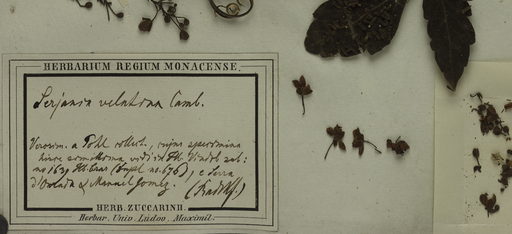 HERBARIUM REGIUM MONACENSE.
Serjania velutina Camb.
a Pohl collect., cujus specimina
Hb. Vindob. sub:
no 1629 (Suppl. no. 676), e Serra
d'Ourada & Manuel Gomez. (Radlk.)
HERB. ZUCCARINII.
Herbar. Univ. Ludov. Maximil.